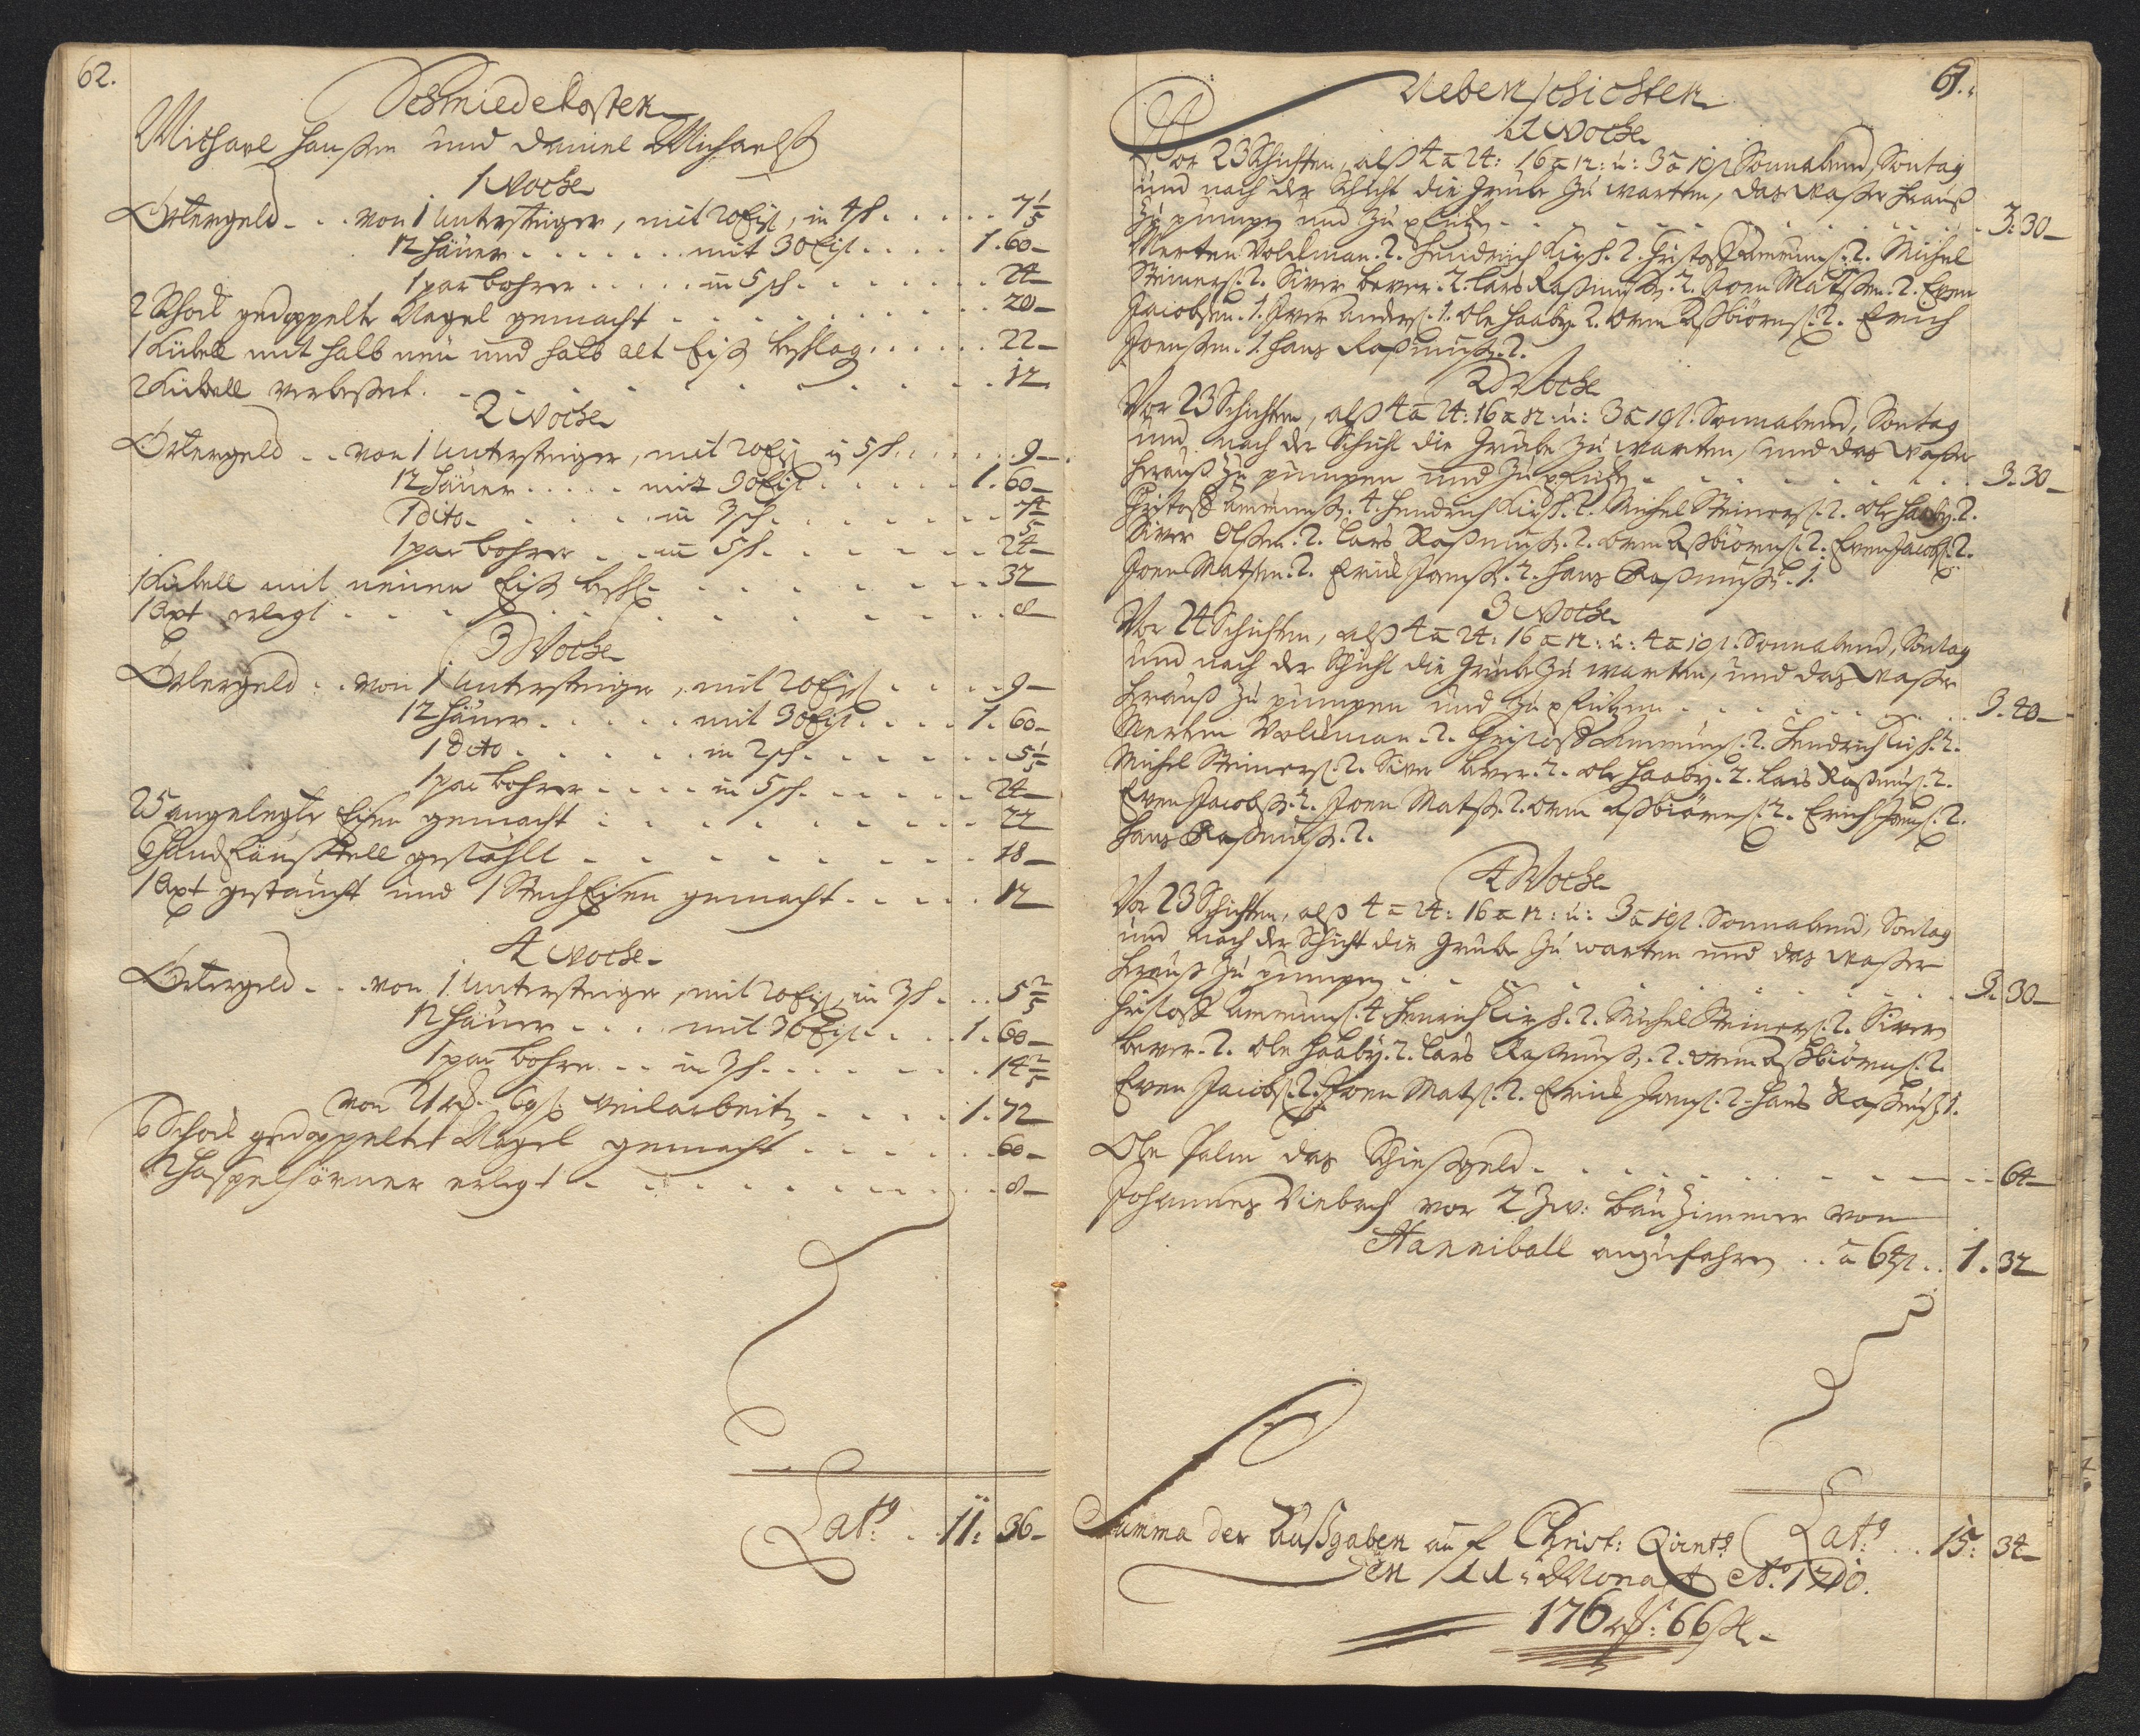 62.
Schmiedekosten
Michael Hanßen und Daniel Michaelß
1 Woche
Örtergeld - . . von 1 Untersteiger, mit 20 Eiß, in 4 sch. . . . . . 7 1/5
12 Häuer . . . . . . . mit 30 Eiß . . . . 1. 60 -
1 par bohrer . . . . . in 5 sch. . . . . . . . 24 -
2 Schock gedoppelte Nagel gemacht . . . . . . . . . . 20 -
1 Kübell mit halb neu und halb alt Eiß beschlag. . . . . . 22 -
2 Kübell verbeßert. . . . . . . . . . . 12.
2 Woche
Örtergeld - . . von 1 Untersteiger, mit 20 Eiß in 5 sch. . . . . . 9 -
12 Häuer . . . . . mit 30 Eiß . . . . . 1. 60 -
1 dito - . . . . . in 3 sch. . . . . . . .
1 par bohrer . . . in 5 sch. . . . . . . 24 -
1 Kübell mit neuen Eiß beschl. . . . . . . . . 32
1 Axt erlegt . . . . . . . . . . . . 8 -
3 Woche
Örtergeld . . . von 1 Untersteiger, mit 20 Eiß . . . . . 9 -
12 Häuer . . . . . mit 30 Eiß . . . . 1. 60 -
1 dito . . . . . . in 2 sch. . . . . . . 5 1/5
1 par bohrer . . . . in 5 sch. . . . . . 24 -
25 angelegte Eisen gemacht . . . . . . . . . 22
6 Handfäustell gestählt . . . . . . . . . 18 -
1 Axt gestaucht und 1 Stech Eisen gemacht . . . . . 12
4 Woche
Örtergeld - . . von 1 Untersteiger, mit 20 Eiß, in 3 sch. . . . 5 2/5
12 Häuer - . . . mit 30 Eiß . . . . 1. 60 -
1 par bohrer . . . in 3 sch. . . . . . . 14 2/5
von 21 . . . . 1. 72
6 Schock gedoppelte Nagel gemacht . . . . . . 60 -
2 Haspelhörner erlegt . . . . . . . . . . 8 -
Lat: . . 11: 36 -
61.
Nebenschichten
1 Woche
Vor 23 Schichten, alß 4 a 24: 16 a 12: u: 3 a 10 ß Sonnabend, Sontag
und nach der Schicht die Grube zu warten, das Waßer herauß
zu pumpen und zu pfützen . . . . . . . . . . 3. 30 -
Merten Volckman. 2. Hendrich Kirß. 2. Christoff Ammunß. 2. Michel
Steinerß. 2. Siver Bever. 2. Lars Raßmuß. 2. Joen Matßen. 2. Even
Jacobsen. 1. Iver Anderß. 1. Ole Haaby 2. Orm Aßbiörnß. 2. Erich
Joenßen. 1. Hans Raßmuß. 2.
2 Woche
Vor 23 Schichten, alß 4 a 24: 16 a 12: u: 3 a 10 ß. Sonnabend, Sontag
und nach der Schicht die Grube zu warten, und das Waßer
herauß zu pumpen und zu pfützen . . . . . . . . 3. 30 -
Christoff Ammunß. 4. Hendrich Kirß. 2. Michel Steinerß. 2. Ole Haaby. 2.
Siver Olßen. 2. Lars Raßmuß. 2. Orm Aßbiörnß. 2. Even Jacobß. 2.
Joen Matßen. 2. Erick Joenß. 2. Hans Raßmußen. 1.
3 Woche
Vor 24 Schichten, alß 4 a 24: 16 a 12: u: 4 a 10 ß. Sonnabend, Sontag
und nach der Schicht die Grube zu warten, und das Waßer
herauß zu pumpen und zu pfützen . . . . . . . . 3. 40 -
Merten Volckman. 2. Christoff Ammunß. 2. Hendrich Kirß. 2.
Michel Steinerß. 2. Siver Bever. 2. Ole Haaby. 2. Lars Raßmuß. 2.
Even Jacobß. 2. Joen Matß. 2. Orm Aßbiörnß. 2. Erich Joenß. 2.
Hans Raßmuß. 2.
4 Woche
Vor 23 Schichten, alß 4 a 24: 16 a 12: u: 3 a 10 ß. Sonnabend, Sontag
und nach der Schicht die Grube zu warten und das Waßer
herauß zu pumpen . . . . . . . . . . . 3. 30 -
Christoff Ammunß. 4. Henrich Kirß. 2. Michel Steinerß. 2. Siver
Bever. 2. Ole Haaby. 2. Lars Raßmuß. 2. Orm Aßbiörnß. 2.
Even Jacobß. 2. Joen Matß. 2. Erick Joenß. 2. Hans Raßmuß. 1.
Ole Palm das Schießgeld . . . . . . . . . . 64 -
Johannes Viebach vor 2 Zw: Bau Zimmer von
Hanniball anzufahren . . a 64 ß . . 1. 32
Lat: . . . 15: 34 -
Summa der Außgaben auf Christ: Quint:
den 11. Monath Ao. 1710.
176 rd: 66 ß -